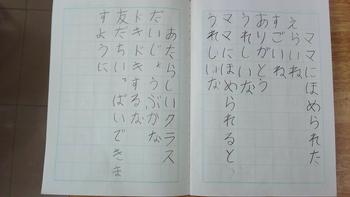 ママにほめられた
えらいね
すごいね
ありがとう
うれしいな
ママにほめられると、
うれしいな
あたらしいクラス
だいじょうぶかな
ドキドキするな
友だちいっぱいできま
すように